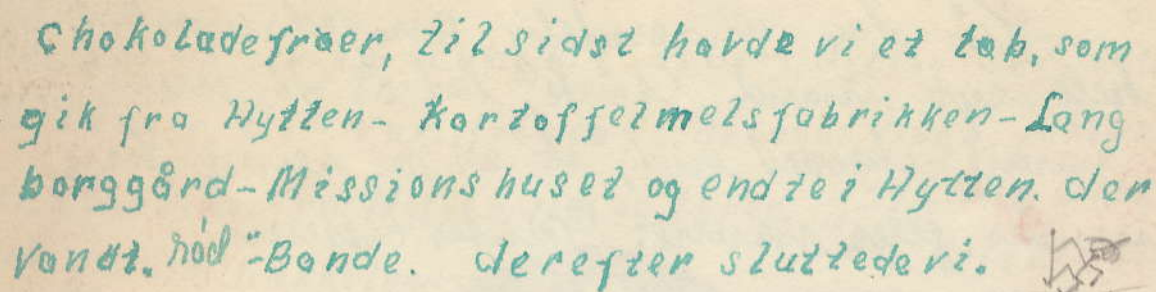 Chokoladefrøer, til sidst havde vi et løb, som
gik fra Hytten - Kartoffelmelsfabrikken - Lang
borggård - Missionshuset og endte i Hytten. der
vandt. rød "-Bande. derefter sluttede vi.